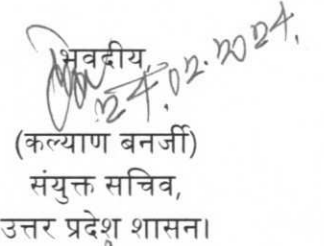 भवदीय,
24.02.2024.
(कल्याण बनर्जी)
संयुक्त सचिव,
उत्तर प्रदेश शासन।